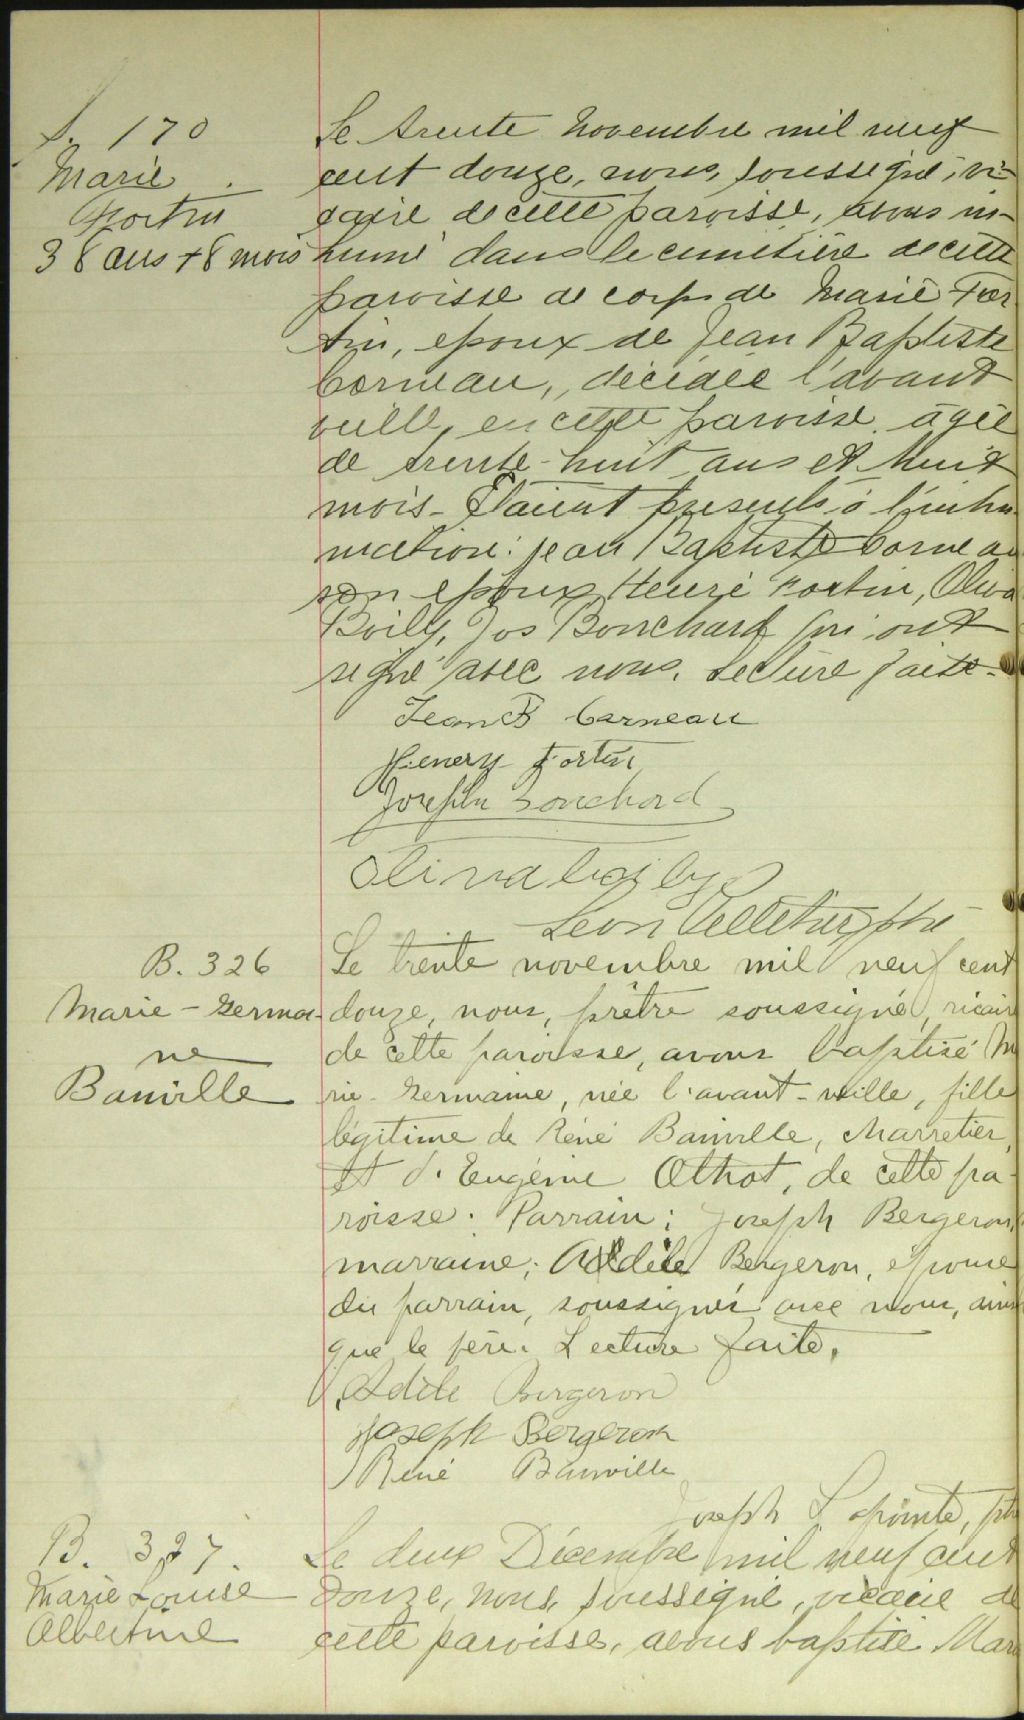 S. 170
Marie
Fortin
38 ans + 8 mois
Le trente novembre mil neuf
cent douze, nous, soussigné, vi-
caire de cette paroisse, avons in-
humé dans le cimetière de cette
paroisse le corps de Marie For
tin, epoux de Jean Baptiste
Corneau, décédée l'avant
veille, en cette paroisse, agée
de trente-huit ans et huit
mois - Etaient présents à l'inhu
mation: Jean Baptiste Corneau
son epoux, Henri Fortin, Oliva
Boily, Jos Bouchard qui ont
signé avec nous. Lecture faite.
Jean B Carneau
Henery Fortin
Joseph Bouchard
Oliva boily
Leon
B. 326
Marie-Germai-
ne
Bainville
Le trente novembre mil neuf cent
douze, nous, prêtre soussigné, vicaire
de cette paroisse, avons baptisé Ma
rie-Germaine, née l'avant-veille, fille
légitime de Réné Bainville, charretier,
et d'Eugénie Othot, de cette pa-
roisse. Parrain: Joseph Bergeron,
marraine; Adèle Bergeron, épouse
du parrain, soussignés avec nous, ainsi
que le père. Lecture faite.
Adèle Bergeron
Joseph Bergeron
René Bainville
Joseph Lapointe, ptre
B. 327.
Marie Louise
Albertine
Le deux Décembre mil neuf cent
douze, nous, soussigné, vicaire de
cette paroisse, avons baptisé Marie